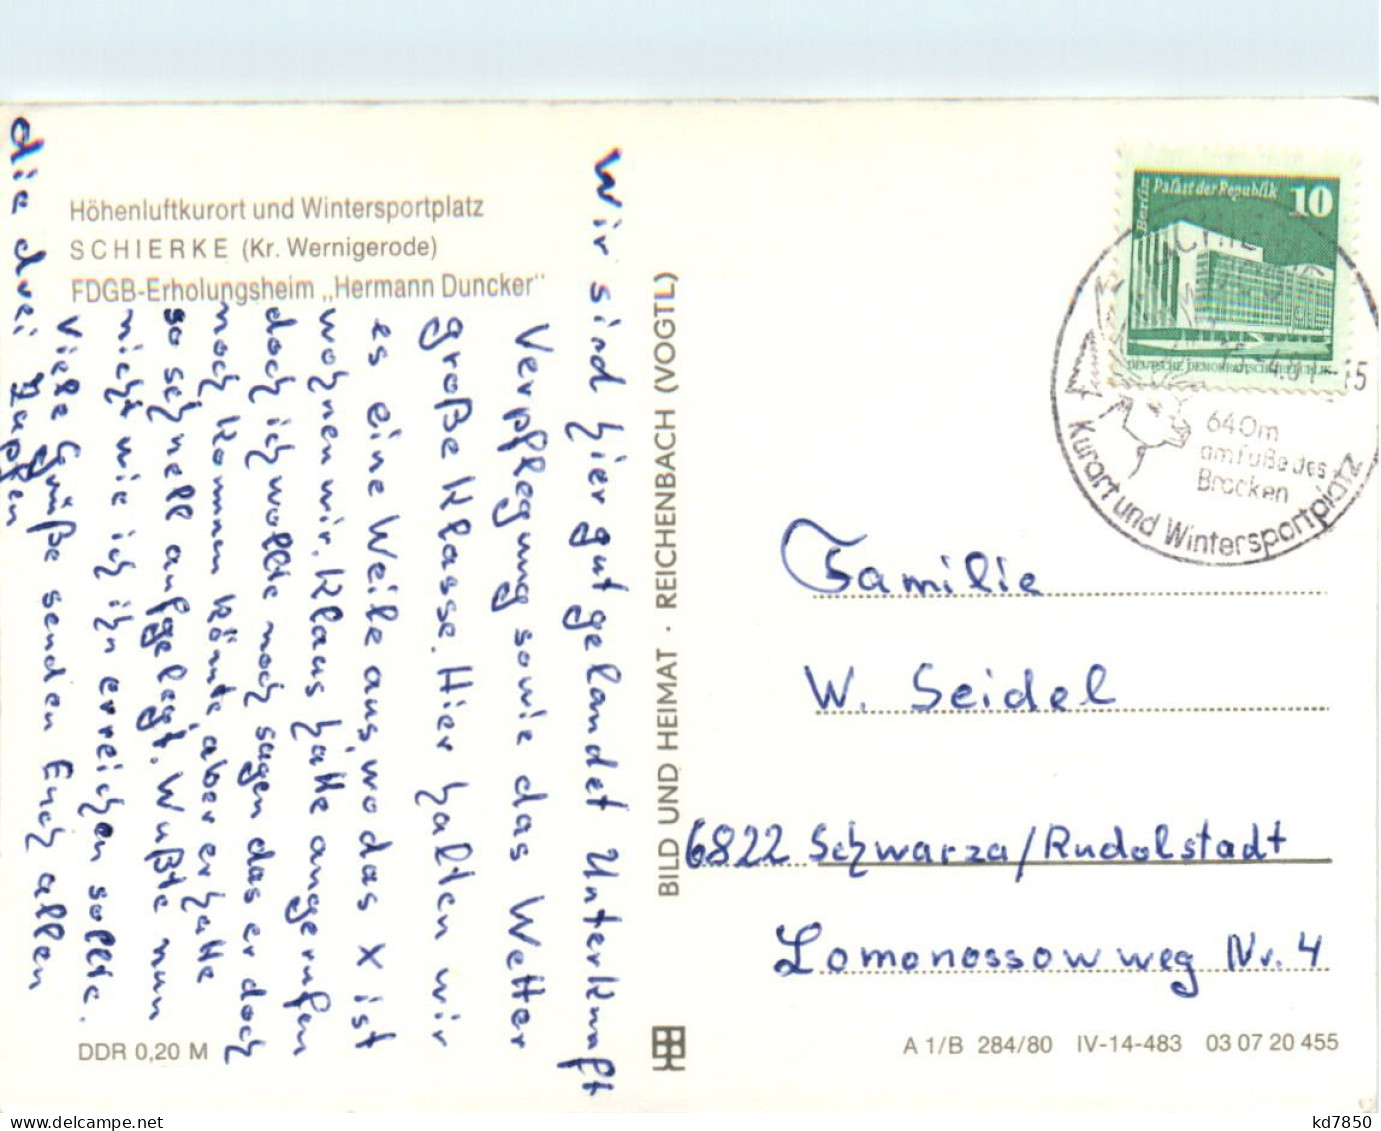 Höhenluftkurort und Wintersportplatz
SCHIERKE (Kr. Wernigerode)
FDGB-Erholungsheim „Hermann Duncker"
Wir sind hier gut gelandet Unterkunft
Verpflegung sowie das Wetter
große Klasse. Hier halten wir
es eine Weile aus, wo das X ist
wohnen wir. Klaus hatte angerufen
doch ich wollte noch sagen das er doch
noch kommen könnte, aber er hatte
so schnell aufgelegt. Wußte nun
nicht wie ich ihn erreichen sollte.
Viele Grüße senden Euch allen
die drei
DDR 0,20 M
BILD UND HEIMAT · REICHENBACH (VOGTL)
Berlin
Palast der Republik
10
DEUTSCHE DEMOKRATISCHE REPUBLIK
640m
am Fuße des
Brocken
Kurort und Wintersportplatz
Familie
W. Seidel
6822 Schwarza/Rudolstadt
Lomonossowweg Nr. 4
A 1/B 284/80 IV-14-483 03 07 20 455
kd7850